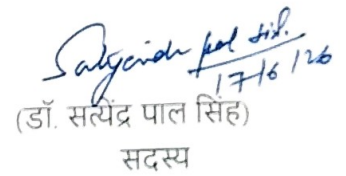 Satyendra pal sih.
17/6/26
(डॉ. सत्येंद्र पाल सिंह)
सदस्य